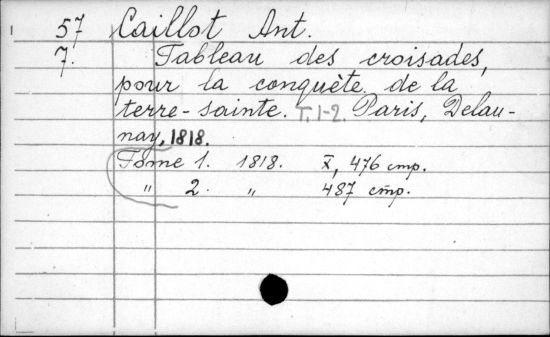 57 Caillot Ant.
7. Tableau des croisades,
pour la conquête de la
terre-sainte. T. 1-2. Paris, Delau-
nay, 1818.
Tome 1. 1818. X, 476 стр.
" 2. " 487 стр.